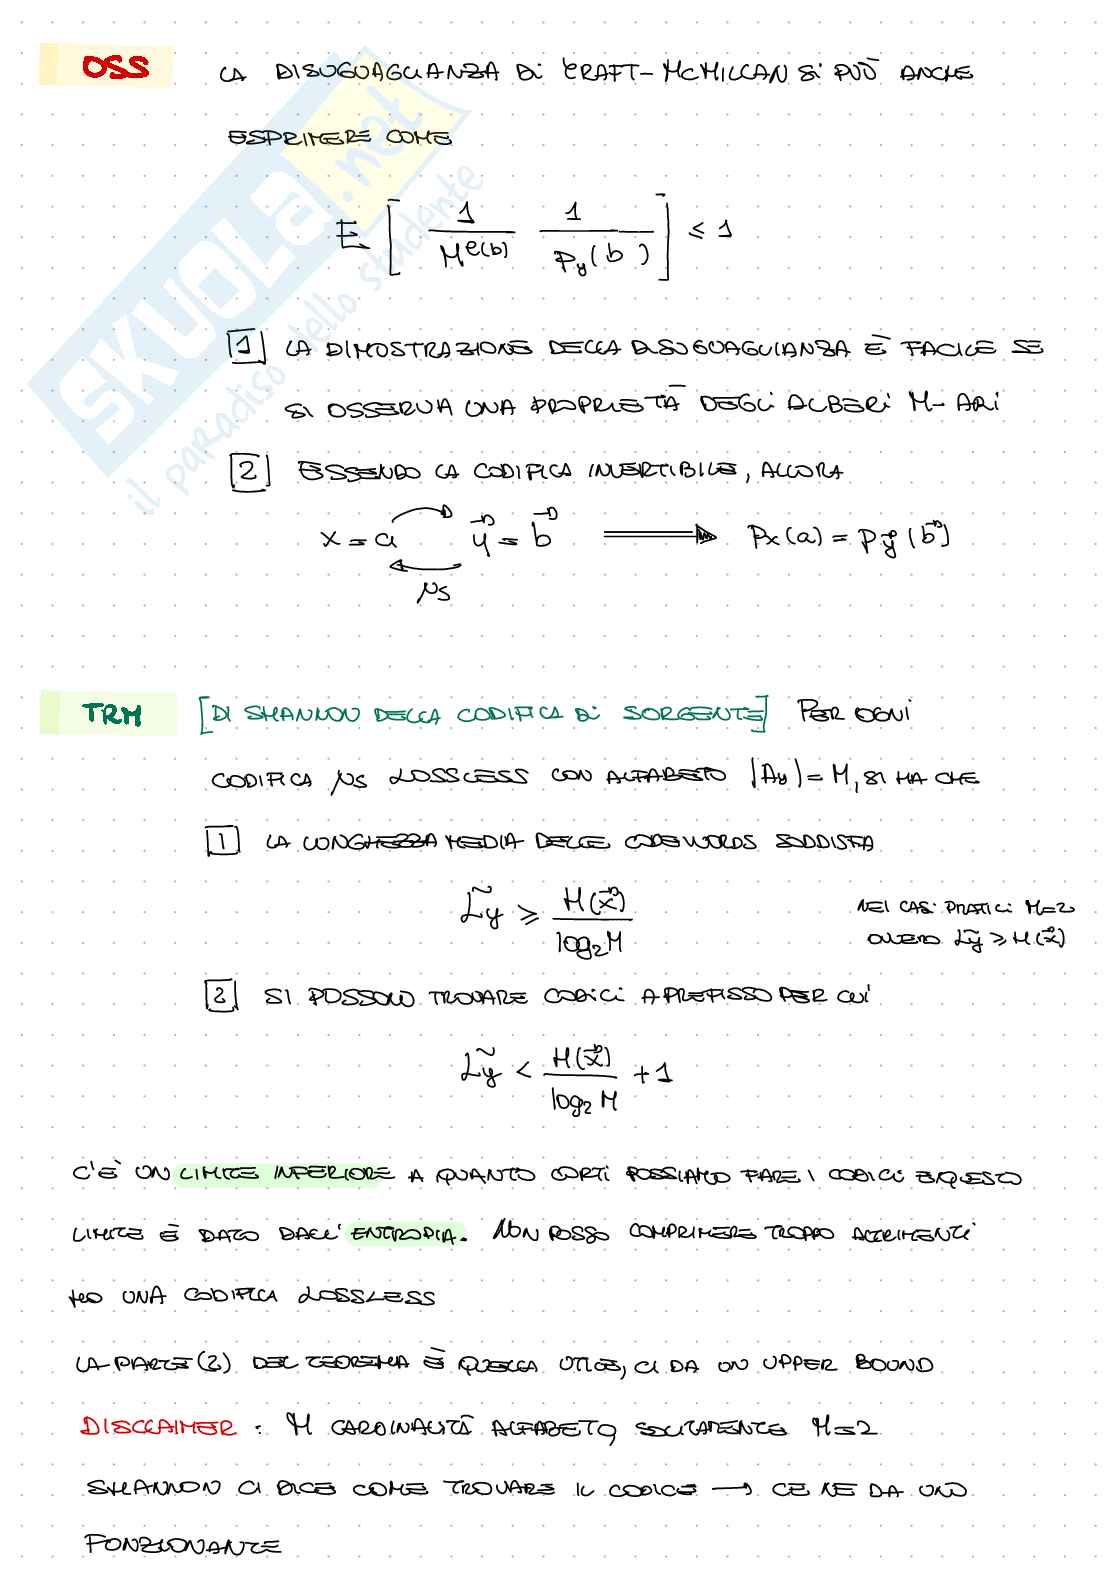 OSS LA DISUGUAGLIANZA DI KRAFT-MCMILLAN SI PUÒ ANCHE
ESPRIMERE COME
E [ 1/M^ℓ(b) 1/Py(b) ] ≤ 1
1 LA DIMOSTRAZIONE DELLA DISUGUAGLIANZA È FACILE SE
SI OSSERVA UNA PROPRIETÀ DEGLI ALBERI M-ARI
2 ESSENDO LA CODIFICA INVERTIBILE, ALLORA
x = a y⃗ = b⃗ ⟹ Px(a) = Py⃗(b⃗)
μs
TRM [DI SHANNON DELLA CODIFICA DI SORGENTE] PER OGNI
CODIFICA μs LOSSLESS CON ALFABETO |Ay| = M, SI HA CHE
1 LA LUNGHEZZA MEDIA DELLE CODEWORDS SODDISFA
L̃y ≥ H(x⃗)/log₂M
NEI CASI PRATICI M=2
OVVERO L̃y ≥ H(x⃗)
2 SI POSSONO TROVARE CODICI A PREFISSO PER CUI
L̃y < H(x⃗)/log₂M + 1
C'È UN LIMITE INFERIORE A QUANTO CORTI POSSIAMO FARE I CODICI E QUESTO
LIMITE È DATO DALL'ENTROPIA. NON POSSO COMPRIMERE TROPPO ALTRIMENTI
HO UNA CODIFICA LOSSLESS
LA PARTE (2) DEL TEOREMA È QUELLA UTILE, CI DA UN UPPER BOUND
DISCLAIMER : M CARDINALITÀ ALFABETO, SOLITAMENTE M=2
SHANNON CI DICE COME TROVARE IL CODICE → CE NE DA UNO
FUNZIONANTE
SKUOLA.net
il paradiso dello studente